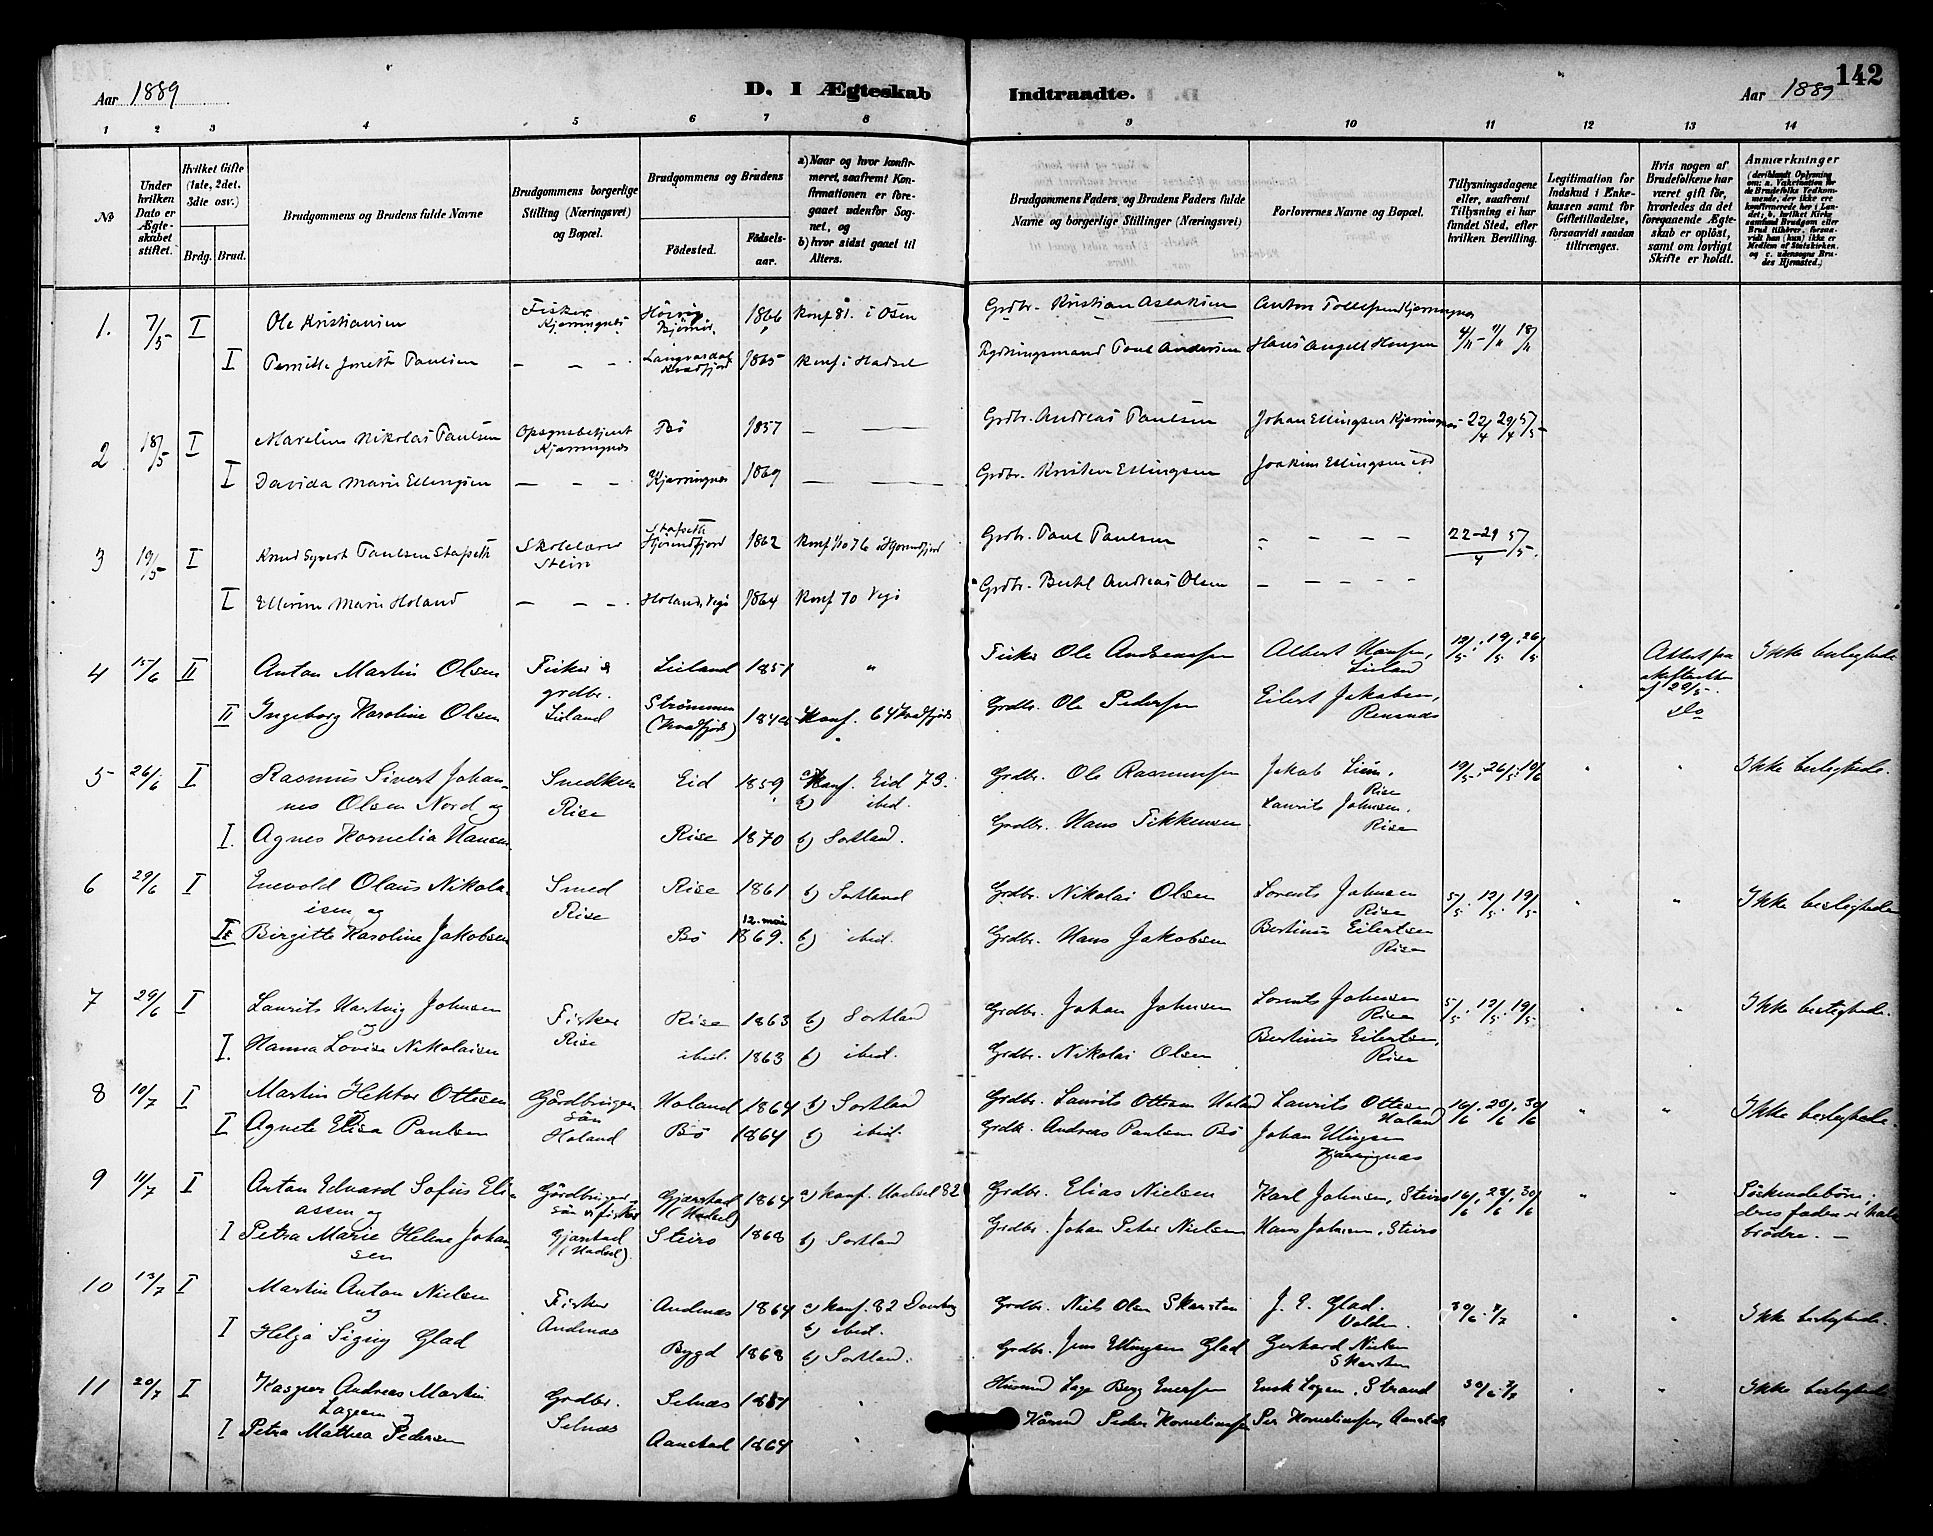 142
Aar 1889 D. I Ægteskab Indtraadte. Aar 1889
1 2 3 4 5 6 7 8 9 10 11 12 13 14
№
Under hvilken Dato er Ægteskabet stiftet.
Hvilket Gifte (1ste, 2det, 3die osv.)
Brdg. Brud.
Brudgommens og Brudens fulde Navne
Brudgommens borgerlige Stilling (Næringsvei) og Bopæl.
Brudgommens og Brudens
Födested. Födsels-aar.
a) Naar og hvor konfirmeret, saafremt Konfirmationen er foregaaet udenfor Sognet, og b) hvor sidst gaaet til Alters.
Brudgommens Faders og Brudens Faders fulde Navne og borgerlige Stillinger (Næringsvei)
Forlovernes Navne og Bopæl.
Tillysningsdagene eller, saafremt Tillysning ei har fundet Sted, efter hvilken Bevilling.
Legitimation for Indskud i Enkekassen samt for Giftetilladelse, forsaavidt saadan tiltrænges.
Hvis nogen af Brudefolkene har været gift för, hvorledes da det foregaaende Ægteskab er oplöst, samt om lovligt Skifte er holdt.
Anmærkninger (deriblandt Oplysning om: a. Vakcination for de Brudefolks Vedkommende, der ikke ere konfirmerede her i Landet; b. hvilket Kirkesamfund Brudgom eller Brud tilhörer, forsaavidt han (hun) ikke er Medlem af Statskirken, og c. udensogns Brudes Hjemsted.)
1. 7/5 I Ole Kristiansen Fisker Kjærringnes 1866 Konf 81. i Osen Grdbr. Kristian Aslaksen Anton Tollefsen Kjerringnes 4/11 - 11/11 18/11
I Pernille Paulsen — — — Kvædfjord 1865 Konf i Hadsel Rydningsmand Paul Andersen Hans Angell Haugen
2 18/5 I Marelius Nikolai Paulsen Opsynsbetjent Kjærringnes Bö 1857 — — Grdbr. Andreas Paulsen Johan Ellingsen Kjerringnes 22/4 29/4 5/5
I Davida Marie Ellingsen — — — Kjærringnes 1869 — — Grdbr. Kristen Ellingsen Joakim Ellingsen
3 19/5 I Knud Syvert Paulsen Stafseth Skolelærer Stein Stafseth Hjörundfjord 1862 Konf 1/10 76 Hjorundfjord Grdbr. Paul Paulsen — — — — 22-29/4 5/5.
I Ellerine Marie Holand — — — Holand, Vegö 1864 Konf 70 Vegö Grdbr. Bertel Andreas Olsen — — — —
4 15/6 II Anton Martin Olsen Fisker & grdbr. Liland Liland 1851 " Fisker Ole Andreassen Albert Hansen, Liland 12/5. 19/5. 26/5 Attest fra skifteretten af 29/5. Ikke beslegtede
II Ingeborg Karoline Olsen Strömmen (Kvædfjord) Konf. 64 Kvædfjord Grdbr. Ole Pedersen Eilert Jakobsen, Rensnæs do
5 26/6 I Rasmus Sivert Johannes Olsen Nord og Snedker Rise Eid 1859 a) Konf. Eid 73. b) ibid. Grdbr. Ole Rasmussen Jakob Lien, Rise 19/5. 26/5. 10/6 " " Ikke beslegtede.
I. Agnes Kornelia Hansen Rise 1870 b) Sortland. Grdbr. Hans Sikkensen Laurits Johnsen, Rise
6 29/6 I Enevold Olaus Nikolaisen og Smed Rise Rise 1861 b) Sortland Grdbr. Nikolai Olsen Lorents Johnsen Rise 5/5. 12/5. 19/5 " " Ikke beslegtede
Birgitte Karoline Jakobsen Bö 12. mai 1869. b) ibid. Grdbr. Hans Jakobsen Bertinus Eilertsen Rise
7 29/6 I Laurits Hartvig Johnsen og Fisker Rise Rise 1863 b) Sortland Grdbr. Johan Johnsen Lorents Johnsen Rise 5/5. 12/5. 19/5 " " Ikke beslegtede.
I. Hanna Lovise Nikolaisen ibid. 1863 b) ibid. Grdbr. Nikolai Olsen Bertinus Eilertsen, Rise
8 10/7 I Martin Hektor Ottesen Gårdbruger sön Holand Holand 1864 b) Sortland Grdbr. Laurits Ottesen Holand Laurits Ottesen Holand 16/6. 23/6. 30/6 " " Ikke beslegtede.
I Agnete Elisa Paulsen Bö 1864 b) ibid. Grdbr. Andreas Paulsen Bö Johan Ellingsen Kjærringnæs
9 11/7 I Anton Edvard Sofus Eliassen og Gårdbruger sön & fisker Gjærstad (Hadsel) Gjærstad (Hadsel) 1864 a) konf. Hadsel 82 Grdbr. Elias Nielsen Karl Johnsen, Steiro 16/6. 23/6. 30/6 " " Söskendebörn; deres fædre er halvbrödre. —
I Petra Marie Helene Johansen Steiro 1868 b) Sortland Grdbr. Johan Peter Nielsen Hans Johnsen, Steiro
10 13/7 I Martin Anton Nielsen og Fisker Andenæs Andenæs 1864 a) konf. 82 Dverberg b) ibid. Grdbr. Niels Olsen Skarsten J. E. Glad. Valden. 30/6. 7/7 " " Ikke beslegtede.
I Helga Signy Glad Bygd 1868 b) Sortland. Grdbr. Jens Ellingsen Glad Gerhard Nielsen Skarsten
11 20/7 I Kasper Andreas Martin Lagesen og Grdbr. Selnæs Selnæs " Husmd Lage Berg Enersen Enok Lagesen, Strand 30/6. 7/7 " " Ikke beslegtede
I Petra Mathea Pedersen Aanstad 1864 " Peder Korneliussen Per Korneliussen, Aanstad